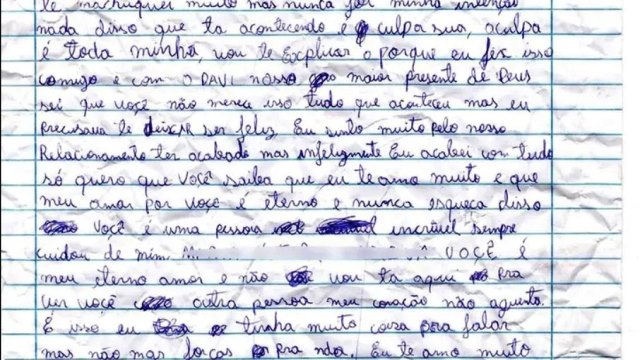 te machuquei muito mas nunca foi minha intenção
nada disso que ta acontecendo é culpa sua, a culpa
é toda minha, vou te Explicar o porque eu fiz isso
comigo e com O DAVI nosso maior presente de Deus
sei que você não merece isso tudo que aconteceu mas eu
precisava te deixar ser feliz Eu sinto muito pelo nosso
Relacionamento ter acabado mas infelizmente Eu acabei com tudo
só quero que você saiba que eu te amo muito e que
meu amor por você é eterno e nunca esqueça disso
você é uma pessoa incrivel sempre
cuidou de mim VOCÊ é
meu eterno amor e não vou ta aqui Pra
ver você outra pessoa meu coração não aguenta
É isso eu tinha muito coisa para falar
mas não mas forças Pra nda. Eu te amo muito